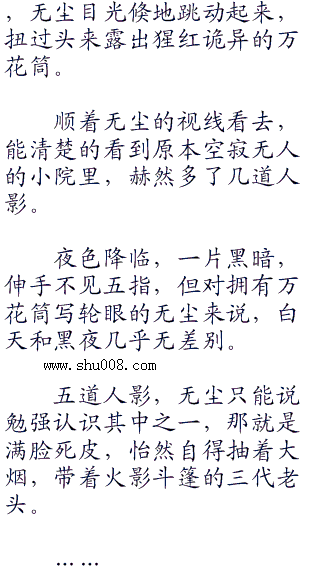 ，无尘目光倏地跳动起来，
扭过头来露出猩红诡异的万
花筒。
顺着无尘的视线看去，
能清楚的看到原本空寂无人
的小院里，赫然多了几道人
影。
夜色降临，一片黑暗，
伸手不见五指，但对拥有万
花筒写轮眼的无尘来说，白
天和黑夜几乎无差别。
www.shu008.com
五道人影，无尘只能说
勉强认识其中之一，那就是
满脸死皮，怡然自得抽着大
烟，带着火影斗篷的三代老
头。
……